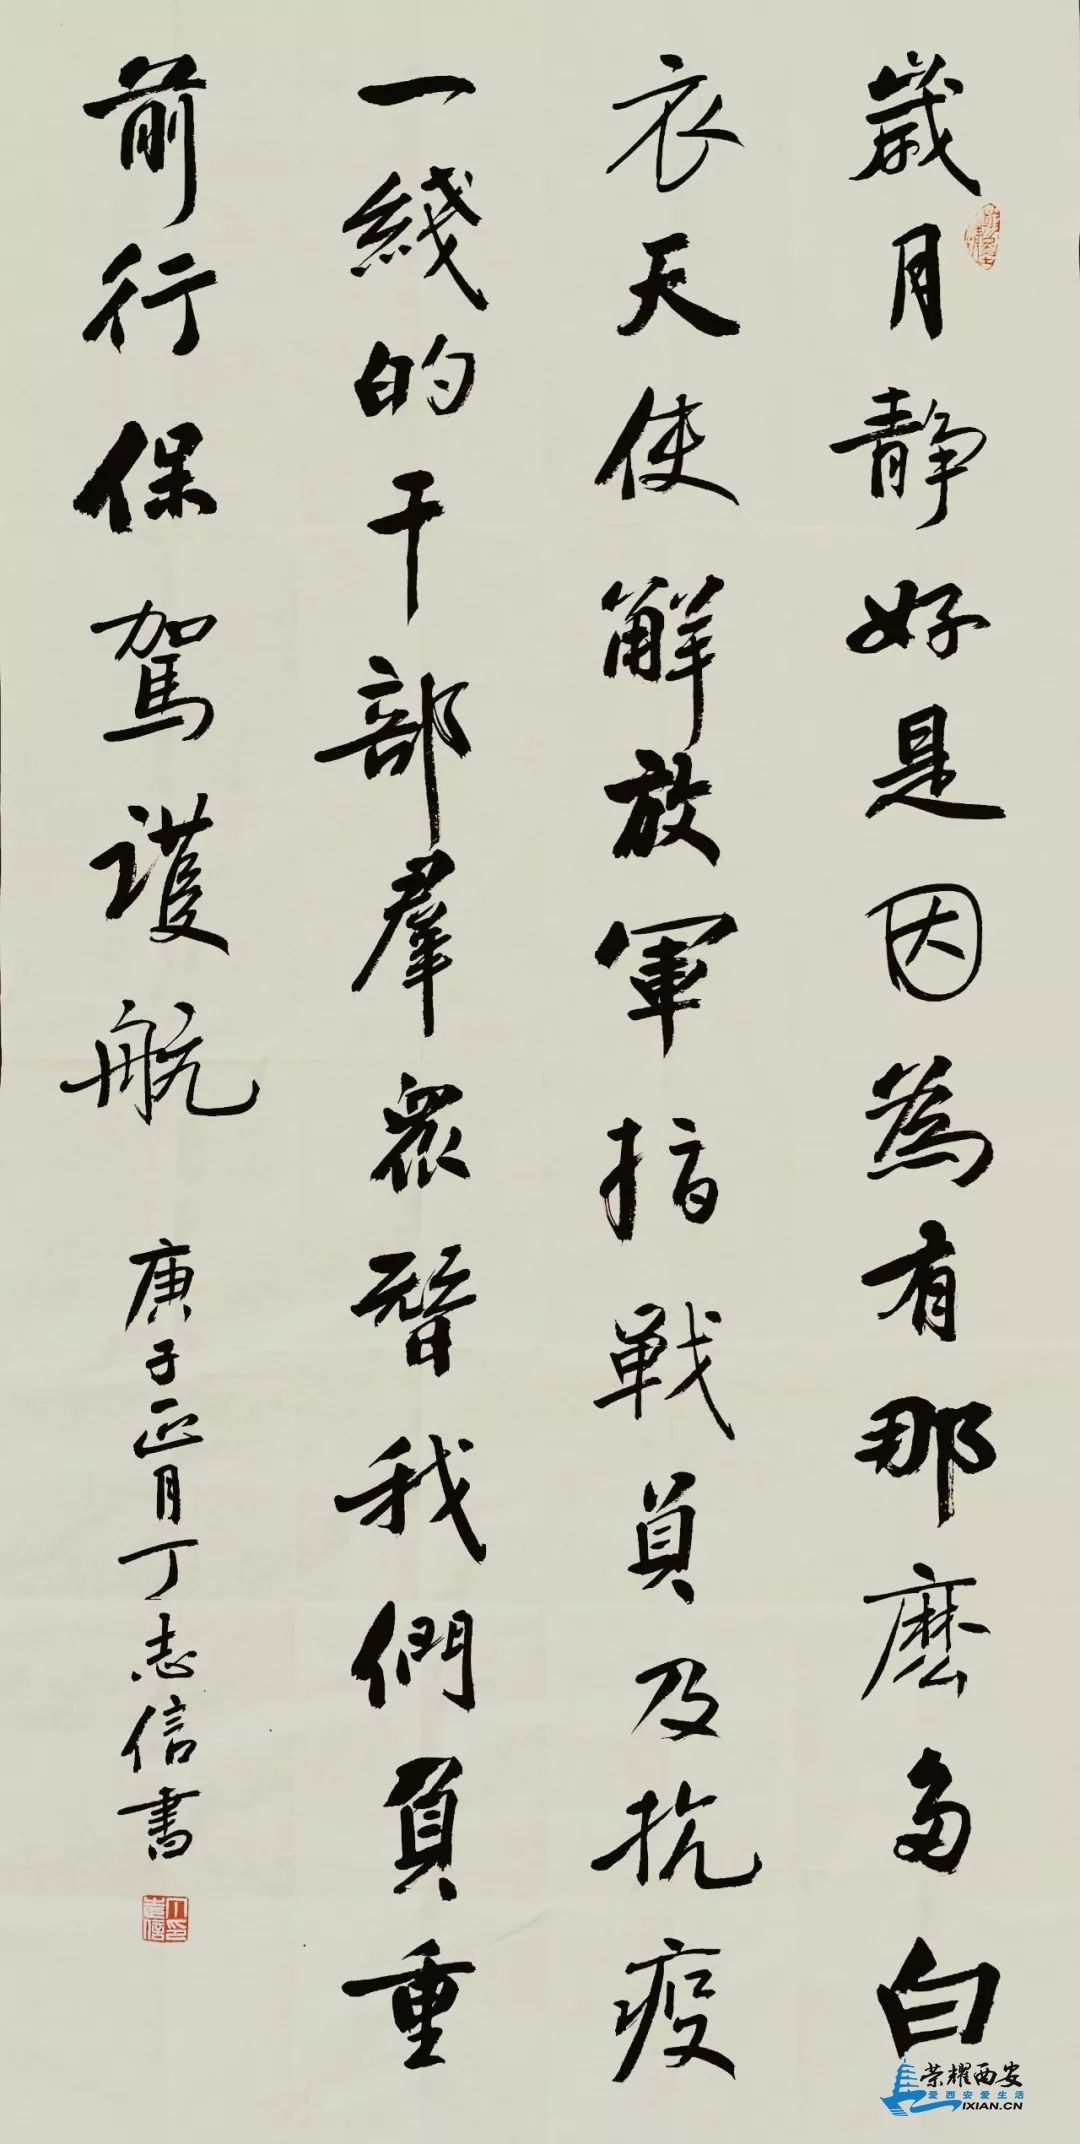 歲月静好是因為有那麽多白
衣天使解放軍指戰員及抗疫
一綫的干部羣衆替我們負重
前行保駕護航
庚子正月丁志信書
荣耀西安
爱西安爱生活
IXIAN.CN